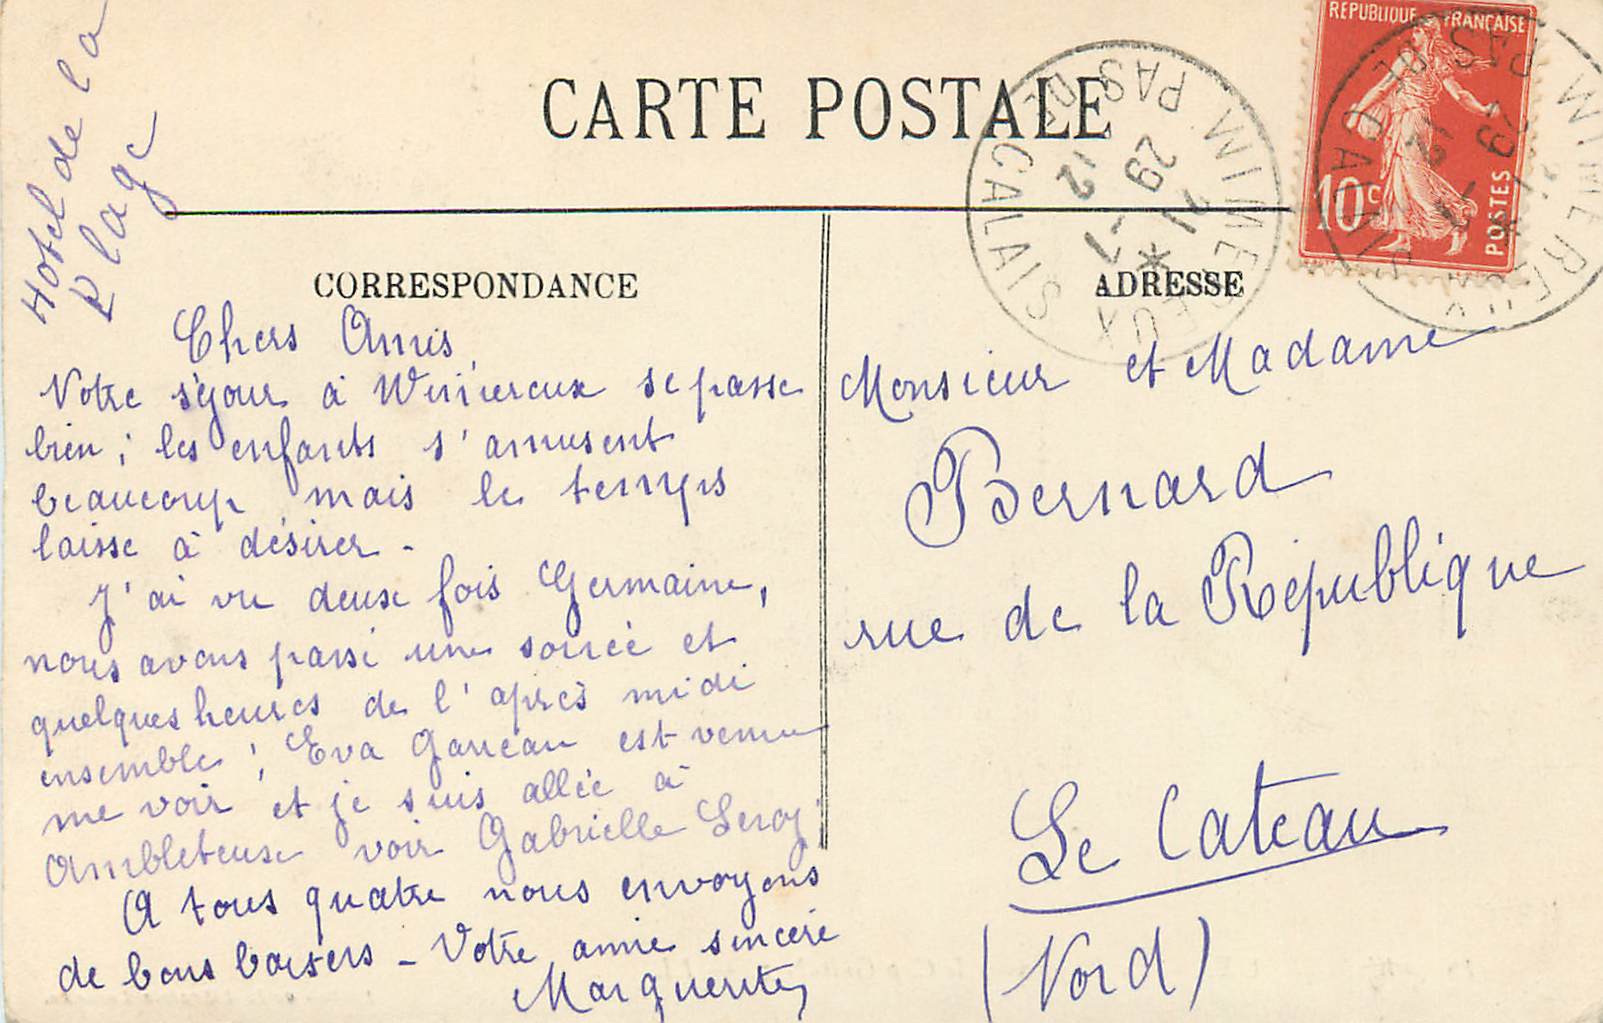 Hotel de la
Plage
CARTE POSTALE
REPUBLIQUE FRANÇAISE
10c
POSTES
WIMEREUX
PAS DE CALAIS
12
29 -7
CORRESPONDANCE
Chers Amis,
Notre séjour à Wimereux se passe
bien ; les enfants s'amusent
beaucoup mais le temps
laisse à désirer -
J'ai vu deux fois Germaine,
nous avons passé une soirée et
quelques heures de l'après midi
ensemble ; Eva est venue
me voir et je suis allée à
Ambleteuse voir Gabrielle Leroy
A tous quatre nous envoyons
de bons baisers - Votre amie sincère
Marguerite
ADRESSE
Monsieur et Madame
Bernard
rue de la République
Le Cateau
(Nord)